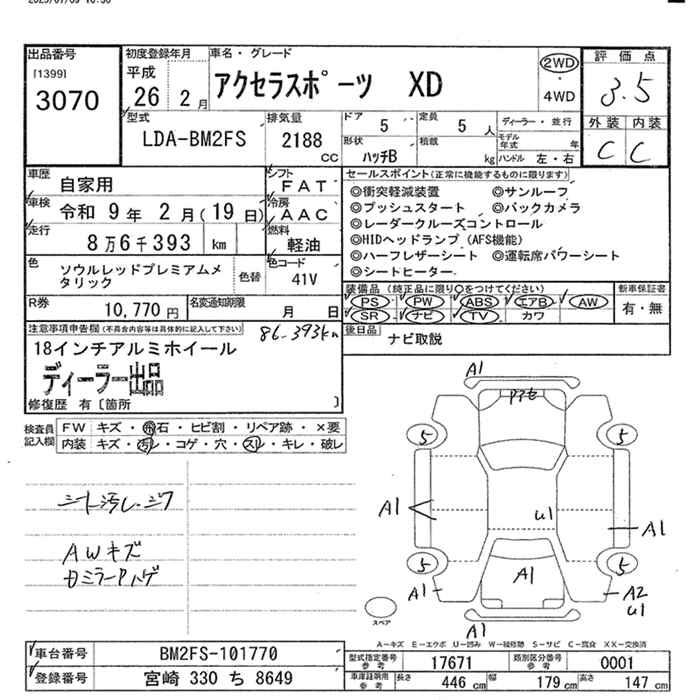 出品番号 初度登録年月 車名・グレード 評価点
[1399] 3070
平成 26 2月
アクセラスポーツ XD
2WD ・ 4WD
3.5
外装 内装
C C
型式 LDA-BM2FS
排気量 2188 cc
ドア 5 定員 5 人
形状 ハッチB 積載 kg
ディーラー・並行
モデル年式 年
ハンドル 左・右
車歴 自家用
シフト FAT
車検 令和 9年 2月(19日)
冷房 AAC
走行 8万6千393 km
燃料 軽油
色 ソウルレッドプレミアムメタリック 色替
色コード 41V
R券 10,770円 名変通知期限 月 日
セールスポイント(正常に機能するものに限ります)
◎衝突軽減装置 ◎サンルーフ
◎プッシュスタート ◎バックカメラ
◎レーダークルーズコントロール
◎HIDヘッドランプ(AFS機能)
◎ハーフレザーシート ◎運転席パワーシート
◎シートヒーター
装備品(純正品に限り○をつけてください) 新車保証書
PS PW ABS エアB AW 有・無
SR ナビ TV カワ
後日品 ナビ取説
注意事項申告欄(不具合内容等は具体的に記入して下さい) 86-393km
18インチアルミホイール
ディーラー出品
修復歴 有〔箇所 〕
検査員記入欄
FW キズ・飛石・ヒビ割・リペア跡・×要
内装 キズ・汚レ・コゲ・穴・スレ・キレ・破レ
シート汚レ・シワ
AWキズ
A1
5 5
A1 U1 A1
5 5
A1 A1 A2
U1
A1
スペア
A-キズ E-エクボ U-凹み W-補修跡 S-サビ C-腐食 XX-交換済
車台番号 BM2FS-101770
登録番号 宮崎 330 ち 8649
型式指定番号 参考 17671 類別区分番号 参考 0001
車庫証明用 参考 長さ 446 cm 幅 179 cm 高さ 147 cm